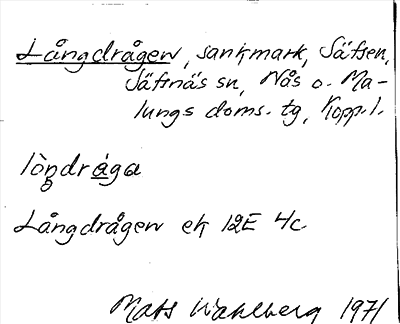 Långdrågen, sankmark, Säfsen,
Säfsnäs sn, Nås o. Ma-
lungs doms. tg, Kopp. l.
lòŋdrȧga
Långdrågen ek 12E 4c
Mats Wahlberg 1971